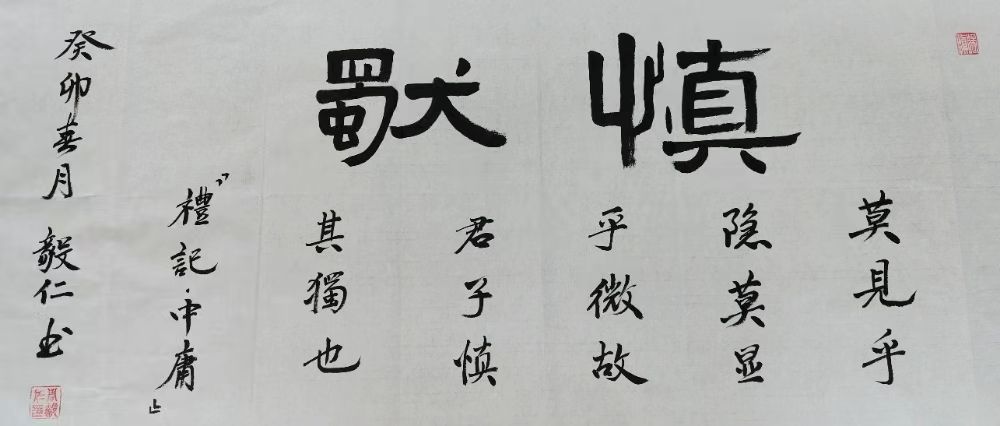 慎獨
莫見乎
隐莫显
乎微故
君子慎
其獨也
『禮記·中庸』
癸卯春月 毅仁书